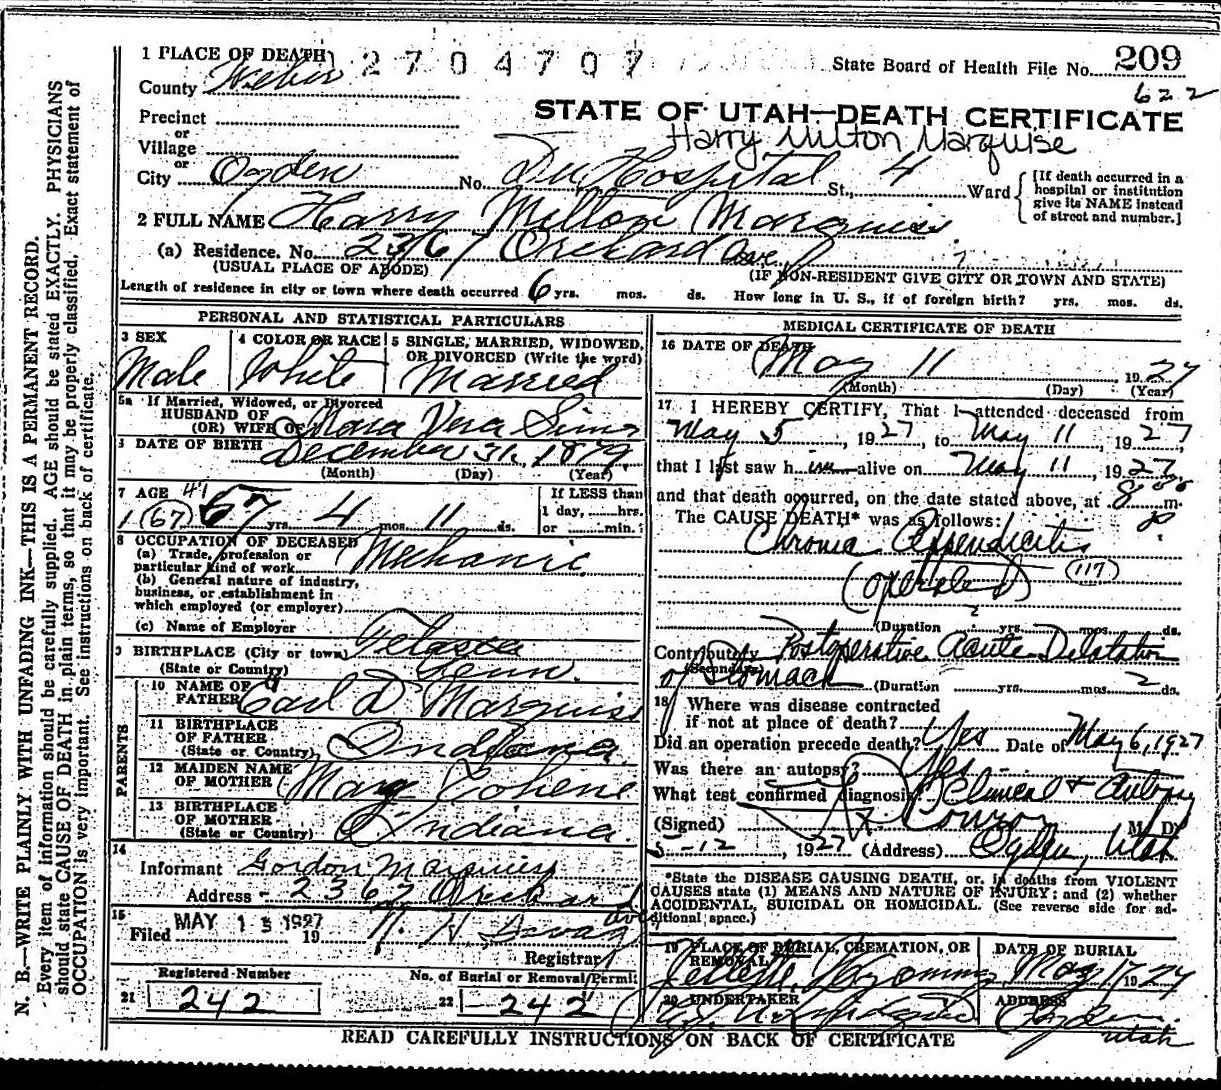 1 PLACE OF DEATH 2704707
State Board of Health File No. 209
County Weber
622
STATE OF UTAH—DEATH CERTIFICATE
Precinct
or
Harry Milton Marquise
Village
or
City Ogden No. Dee Hospital St., 4 Ward
[If death occurred in a
hospital or institution
give its NAME instead
of street and number.]
2 FULL NAME Harry Milton Marquiss
(a) Residence. No. 2367 Orchard Ave
(USUAL PLACE OF ABODE) (IF NON-RESIDENT GIVE CITY OR TOWN AND STATE)
Length of residence in city or town where death occurred 6 yrs. mos. ds. How long in U. S., if of foreign birth? yrs. mos. ds.
PERSONAL AND STATISTICAL PARTICULARS
3 SEX
Male
4 COLOR OR RACE
White
5 SINGLE, MARRIED, WIDOWED,
OR DIVORCED (Write the word)
Married
5a If Married, Widowed, or Divorced
HUSBAND OF
(OR) WIFE OF Vera Sims
DATE OF BIRTH December 31, 1879
(Month) (Day) (Year)
7 AGE 47
(67) 67 yrs. 4 mos. 11 ds.
If LESS than
1 day, hrs.
or min.
8 OCCUPATION OF DECEASED
(a) Trade, profession or
particular kind of work Mechanic
(b) General nature of industry,
business, or establishment in
which employed (or employer)
(c) Name of Employer
9 BIRTHPLACE (City or town)
(State or Country)
PARENTS
10 NAME OF
FATHER Carl D Marquiss
11 BIRTHPLACE
OF FATHER
(State or Country) Indiana
12 MAIDEN NAME
OF MOTHER Mary
13 BIRTHPLACE
OF MOTHER
(State or Country) Indiana
14
Informant Gordon Marquiss
Address 2367 Orchard Ave
15
Filed MAY 13 1927 19
Registrar
Registered Number
21 242
No. of Burial or Removal Permit
22 242
MEDICAL CERTIFICATE OF DEATH
16 DATE OF DEATH May 11 1927
(Month) (Day) (Year)
17 I HEREBY CERTIFY, That I attended deceased from
May 5, 1927, to May 11, 1927
that I last saw him alive on May 11 1927
and that death occurred, on the date stated above, at 8 m.
The CAUSE DEATH* was as follows:
Chronic Appendicitis
(operated) (117)
(Duration yrs. mos. ds.
Contributory Postoperative Acute Dilatation
(Secondary)
of Stomach (Duration yrs. mos. 2 ds.
18 Where was disease contracted
if not at place of death?
Did an operation precede death? Yes Date of May 6, 1927
Was there an autopsy? Yes
What test confirmed diagnosis? Clinical & Autopsy
(Signed) Conroy M. D.
5-12, 1927 (Address) Ogden, Utah
*State the DISEASE CAUSING DEATH, or, in deaths from VIOLENT
CAUSES state (1) MEANS AND NATURE OF INJURY; and (2) whether
ACCIDENTAL, SUICIDAL OR HOMICIDAL. (See reverse side for ad-
ditional space.)
19 PLACE OF BURIAL, CREMATION, OR
REMOVAL
Gillette, Wyoming
DATE OF BURIAL
May 1927
20 UNDERTAKER
ADDRESS
Ogden
Utah
READ CAREFULLY INSTRUCTIONS ON BACK OF CERTIFICATE
N. B.—WRITE PLAINLY WITH UNFADING INK—THIS IS A PERMANENT RECORD.
Every item of information should be carefully supplied. AGE should be stated EXACTLY. PHYSICIANS
should state CAUSE OF DEATH in plain terms, so that it may be properly classified. Exact statement of
OCCUPATION is very important. See instructions on back of certificate.